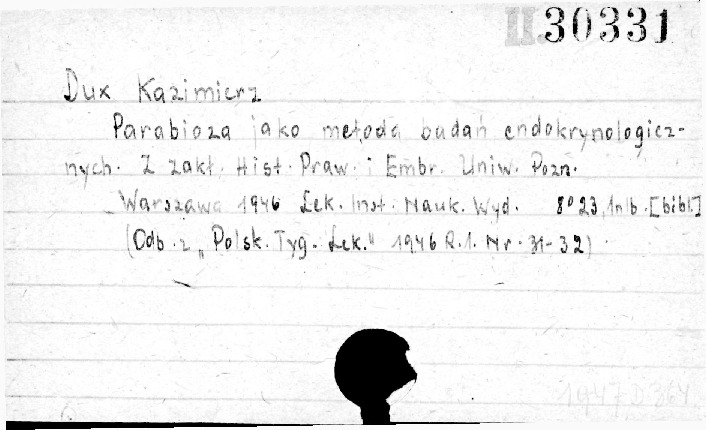 II.30331
Dux Kazimierz
Parabioza jako metoda badań endokrynologicz-
nych. Z zakł. Hist. Praw. i Embr. Uniw. Pozn.
Warszawa 1946 Lek. Inst. Nauk. Wyd. 8º 23, 1nlb. [bibl.]
(Odb. z „Polsk. Tyg. Lek." 1946 R.1. Nr. 31-32)
1947 D 364